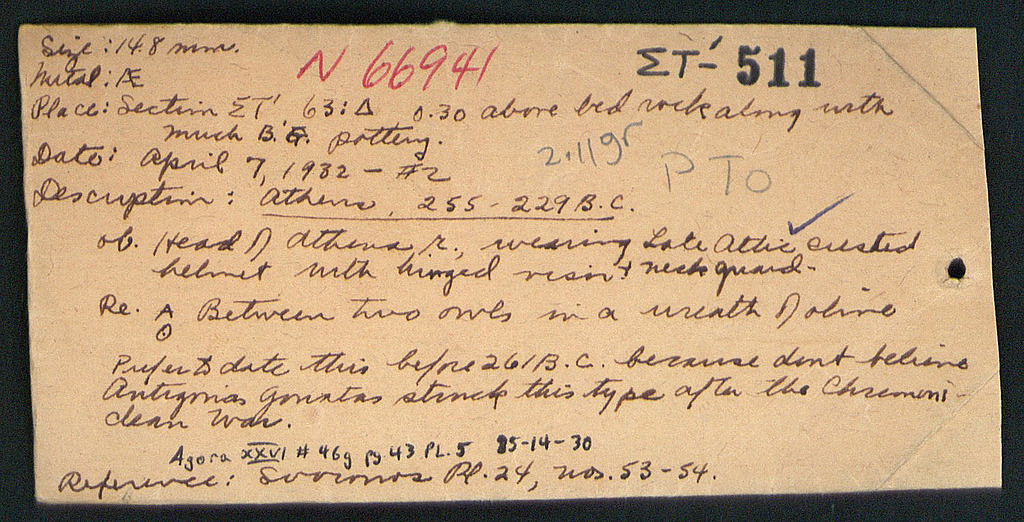 Size: 14.8 mm. N 66941 ΣΤ'- 511
Metal: Æ
Place: Section ΣΤ' 63:Δ 0.30 above bed rock along with
much B.G. pottery. 2.11gr
Date: April 7, 1932 - #2 PTO
Description: Athens, 255-229 B.C.
ob. Head of Athena r., wearing Late Attic crested
helmet with hinged visor + neck guard.
Re. Α Between two owls in a wreath of olive
Θ
Prefer to date this before 261 B.C. because dont believe
Antigonas Gonatas struck this type after the Chremoni-
dean War.
Agora XXVI # 46g pg 43 PL. 5 85-14-30
Reference: Svoronos Pl. 24, nos. 53-54.